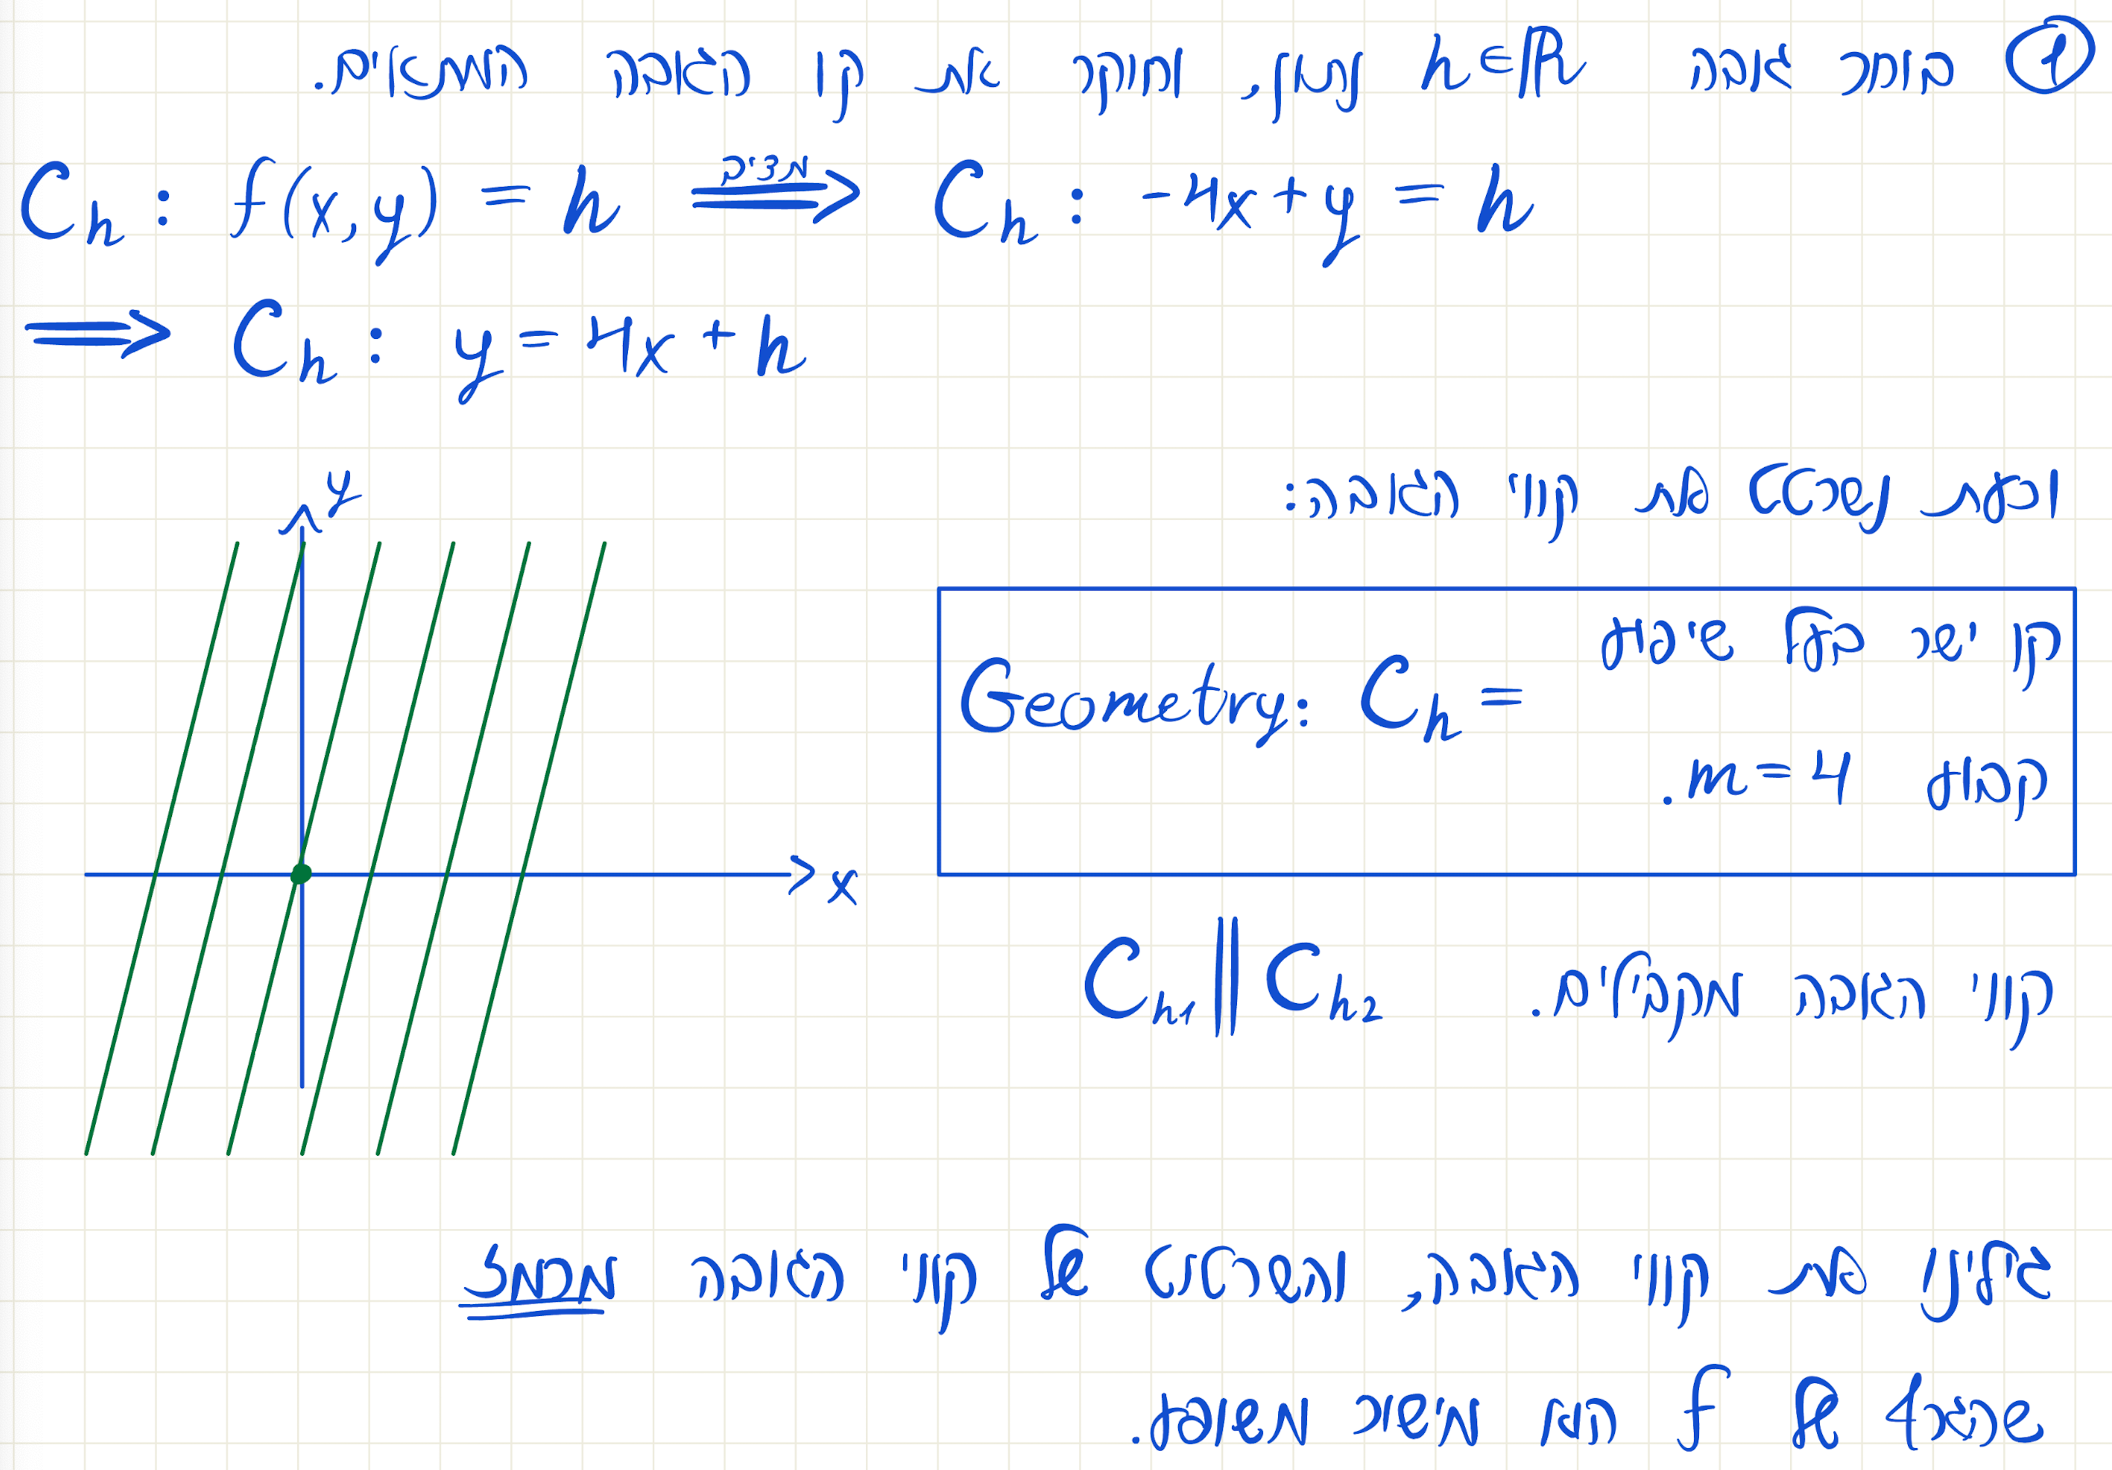 ① בוחר גובה h∈ℝ נתון, וחוקר את קו הגובה המתאים.
C_h : f(x,y) = h ⟹ (מציב) C_h : -4x+y = h
⟹ C_h : y = 4x + h
וכעת נשרטט את קווי הגובה:
y
x
Geometry: C_h = קו ישר בעל שיפוע
קבוע m = 4.
קווי הגובה מקבילים. C_h1 ∥ C_h2
גילינו את קווי הגובה, והשרטוט של קווי הגובה מרמז
שהגרף של f הוא מישור משופע.